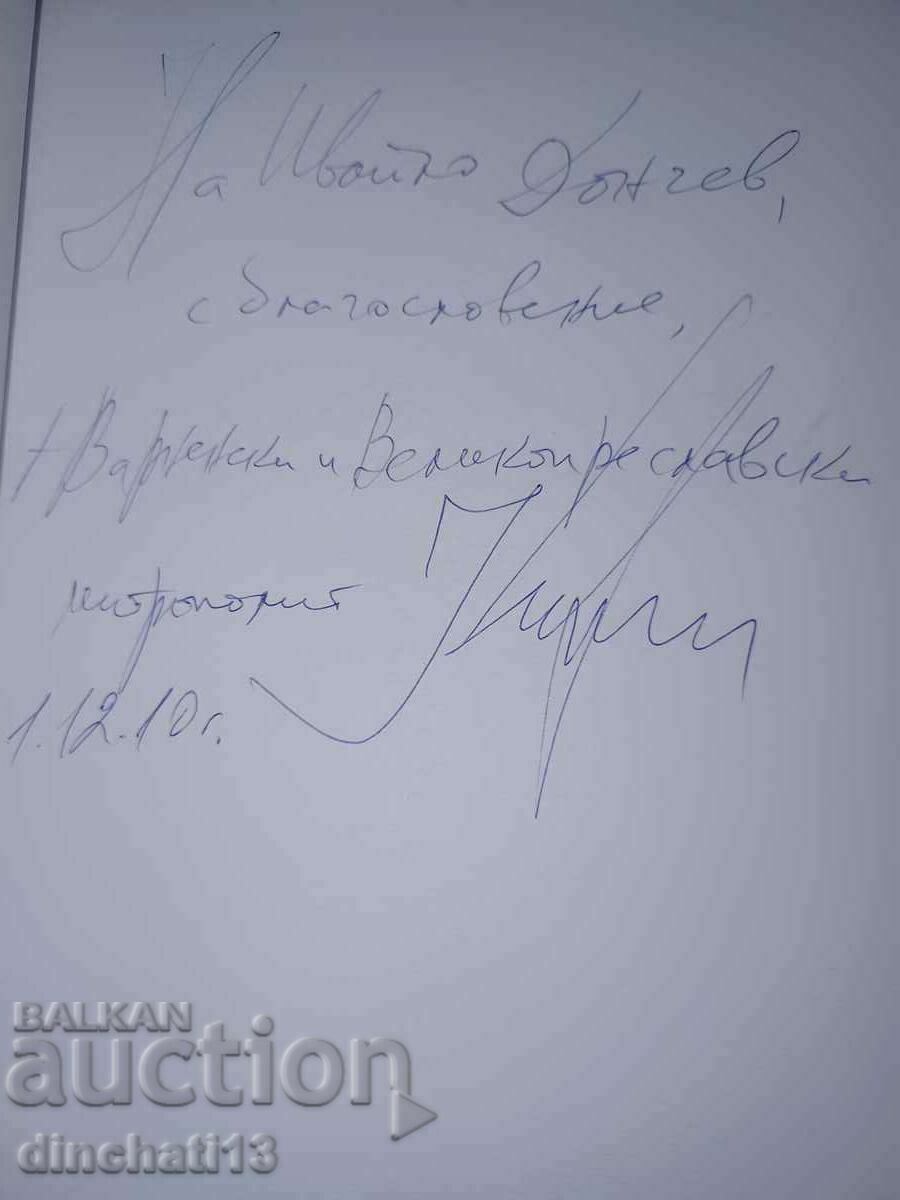 На Ивайло Дончев,
с благословение,
† Варненски и Великопреславски
митрополит Кирил
1.12.10г.
BALKAN
auction
dinchati13